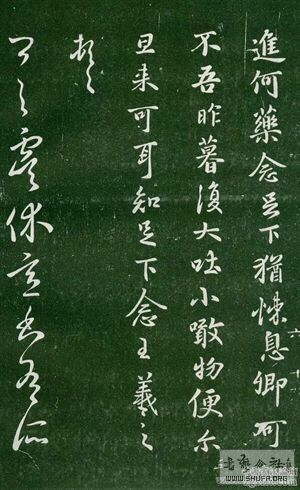 進何藥念足下猶悚息卿可
不吾昨暮復大吐小噉物便尔
旦来可耳知足下念王羲之
頓首
虞休
書藝公社
WWW.SHUFA.ORG